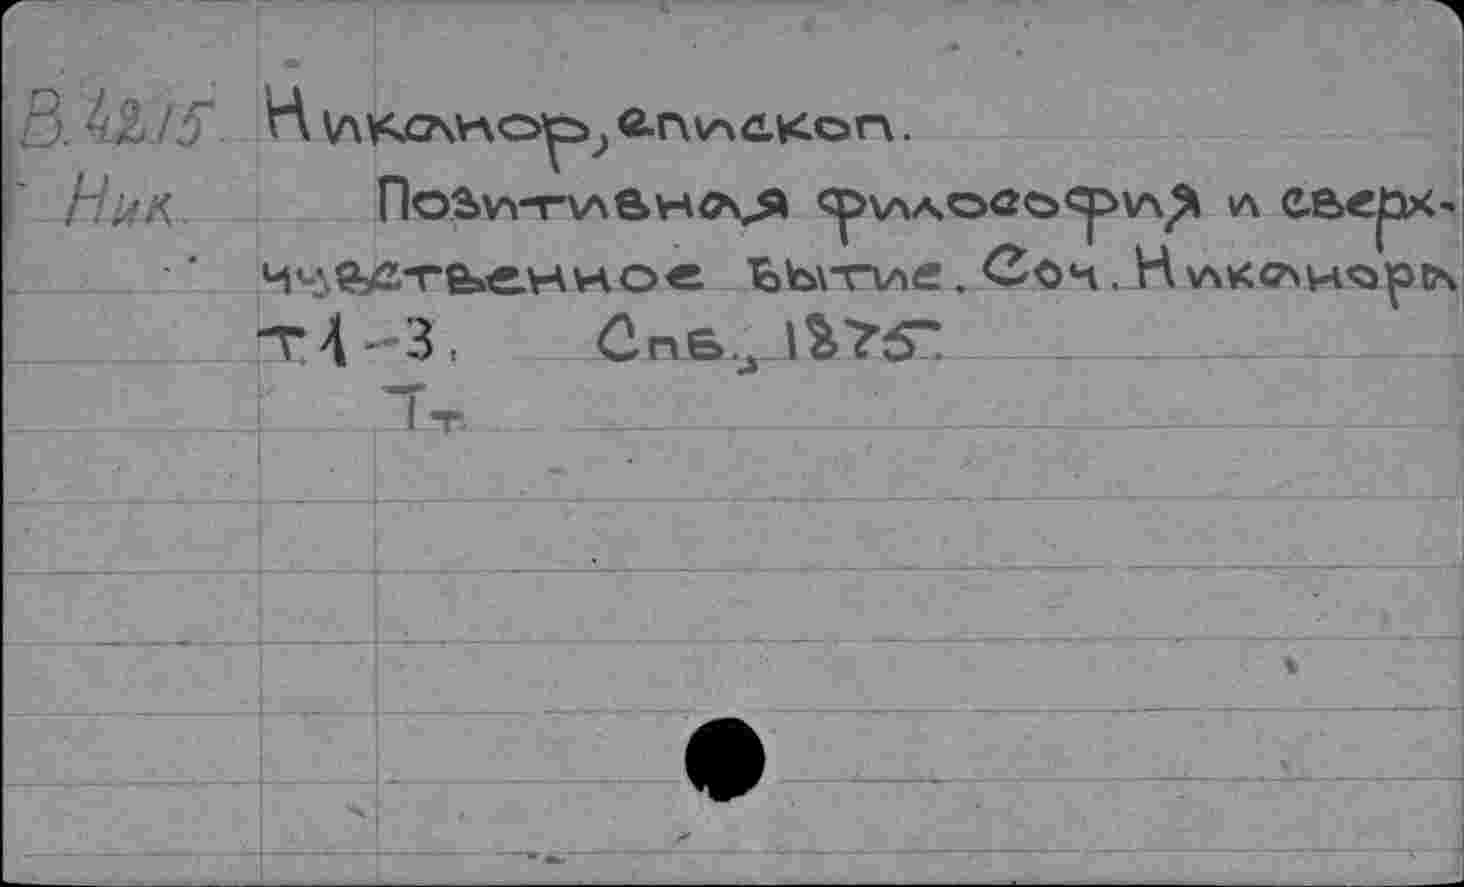 В.4215 Никанор, епископ.
Ник Позитивная философия и сверх-
чувственное бытие. Соч. Никанора
т 1-3. Спб., 1875.
Тт